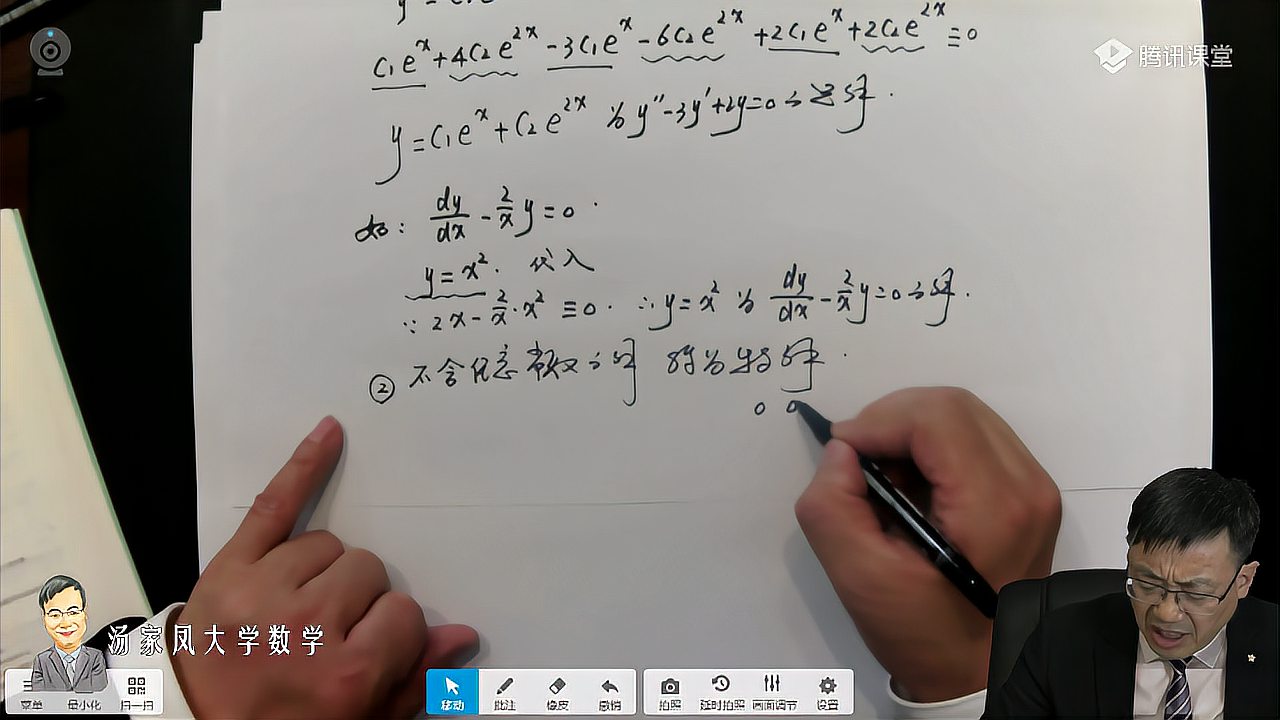 C₁eˣ+4C₂e²ˣ-3C₁eˣ-6C₂e²ˣ+2C₁eˣ+2C₂e²ˣ≡0
腾讯课堂
y=C₁eˣ+C₂e²ˣ 为y''-3y'+2y=0的通解.
如: dy/dx - 2/x y=0.
y=x². 代入
∵ 2x - 2/x·x² ≡0. ∴y=x² 为 dy/dx - 2/x y=0的解.
② 不含任意常数的解 称为特解.
汤家凤大学数学
菜单 最小化 扫一扫
移动 批注 橡皮 撤销 拍照 延时拍照 画面调节 设置